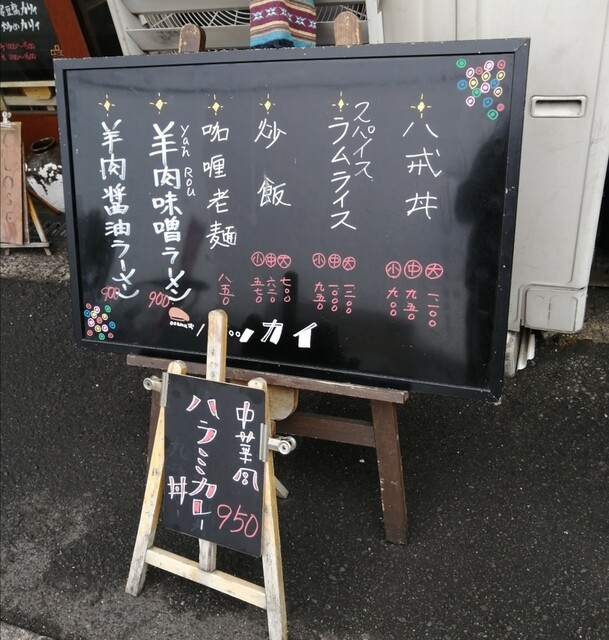 八戒丼
大 中 小
九五〇
九〇〇
スパイス
ラムライス
大 中 小
九五〇
炒飯
大 中 小
七〇〇
咖喱老麺
八五〇
Yan Rou
羊肉味噌ラーメン
900
羊肉醤油ラーメン
900
ハッカイ
中華風
ハラミカレー
丼
950
CLOSE